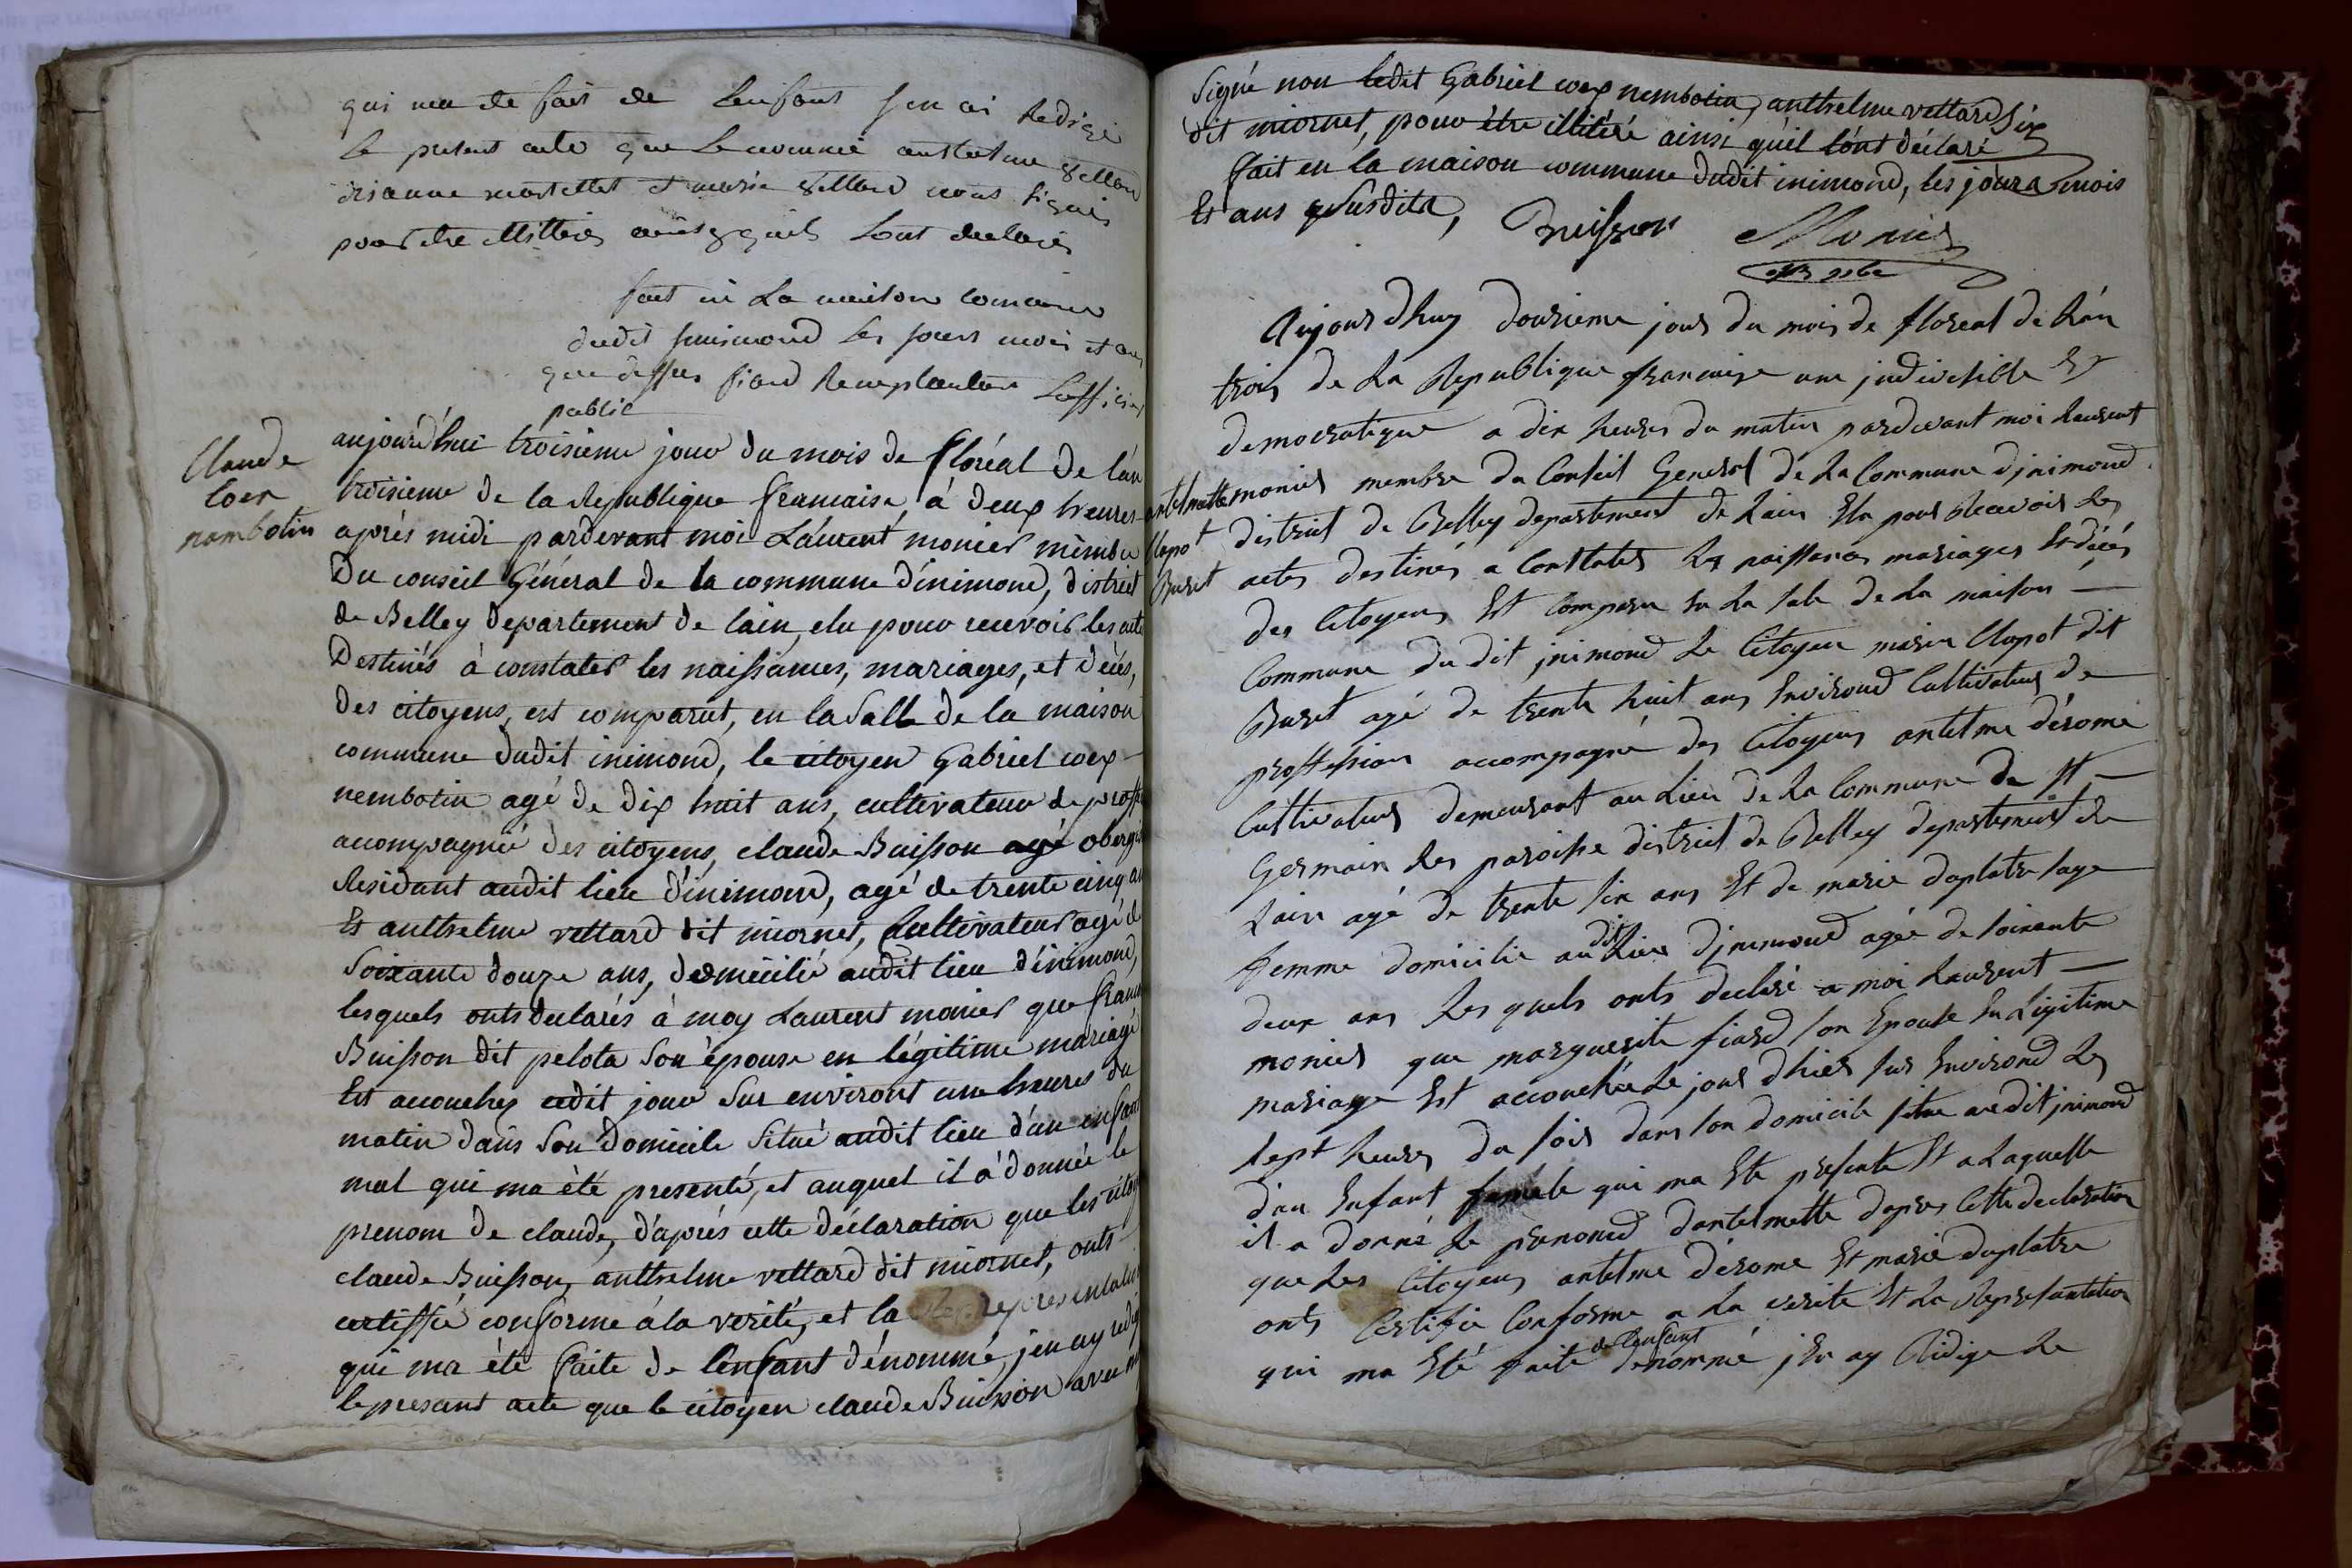 qui ma ete fait de lenfant jen ai Redigé
le present acte que le nommé anthelme vettard
marie vettard nous signés
pour etre illitteré ainsy quils lont declarés
fait en La maison commune
dudit jnimond les jours mois et ans
que dessus fiard Remplacant Lofficier
public
Claude
coex
nambotin
aujourd'hui troisieme jour du mois de floréal de l'an
troisieme de la Republique francaise, à deux heures
aprés midi pardevant moi Laurent monier membre
Du conseil Général de la commune d'inimond, district
de Belley Departement de lain, elu pour recevoir les acte
Destinés à constater les naissances, mariages, et décès,
Des citoyens, est comparut, en la Salle de la maison
commune dudit inimond, le citoyen Gabriel coex
nembotin agé de Dix huit ans, cultivateur de proff
accompagnié des citoyens, claude Buisson agé oberg
Residant audit lieu d'inimond, agé de trente cinq an
Et anthelme vettard dit miornet, Cultivateur agé de
Soixante douze ans, domicilié audit lieu d'inimond,
lesquels onts declarés à moy Laurent monier que fran
Buisson dit pelota Son épouse en légitime mariage
Est accouchez cedit jour Sur environt une heures du
matin dans Son Domicile Situé audit lieu d'un enfant
mal qui ma été presenté, et auquel il a donnée le
prenom de claude, d'aprés cette déclaration que les citoy
claude Buisson, anthelme vettard dit miornet, onts
certiffié conforme à la verité, et la representation
qui ma été faite de l'enfant dénommé, jen ay redigé
le presant acte que le citoyen claude Buisson avec m
Signé non ledit Gabriel coex nembotin, anthelme vettard
dit miornet, pour être illitéré ainsi qu'il l'ónt déclaré
fait en la maison commune dudit inimond, les jours mois
Et ans qu Susdits, Buisson Monier
Aujourdhuy dousieme jour du mois de floreal de lán
trois de La Republique francaise une jndivisible Et
democratique a dix heures du matin pardevant moi Laurent
antelmette monier membre du Conseil General de La Commune djnimond
Clapot district de Belley departement de Lain Elu pour Recevoir les
Buret actes destinés a Constater les naissances mariages Et décés
des Citoyens Est Comparu En La sale de La maison
Commune du dit jnimond Le Citoyen Clapot dit
Buret agé de trente huit ans Environd Cultivateur de
proffession accompagné des Citoyens antelme dérome
Cultivateur demeurant au Lieu de La Commune de st
Germain Les paroisse district de Belley departement de
Lain agé de trente six ans Et de marie duplatre sage
femme domicilie au dit Lieu djnimond agée de soixante
deux ans Les quels onts declaré a moi Laurent
monier que marguerite fiard son Epouse En Legitime
mariage Est accouchée Le jour dhier sur Environd les
sept heures du soir dans son domicile situe au dit jnimond
d'un Enfant femele qui ma Ete presente Et a Laquelle
il a donné le prenomd dantelmette dapres Cette declaration
que Les Citoyens antelme dérome Et marie duplatre
onts Certifie Conforme a La verite Et La Representation
qui ma Eté faite de lenfant denommé jEn ay Redige Le